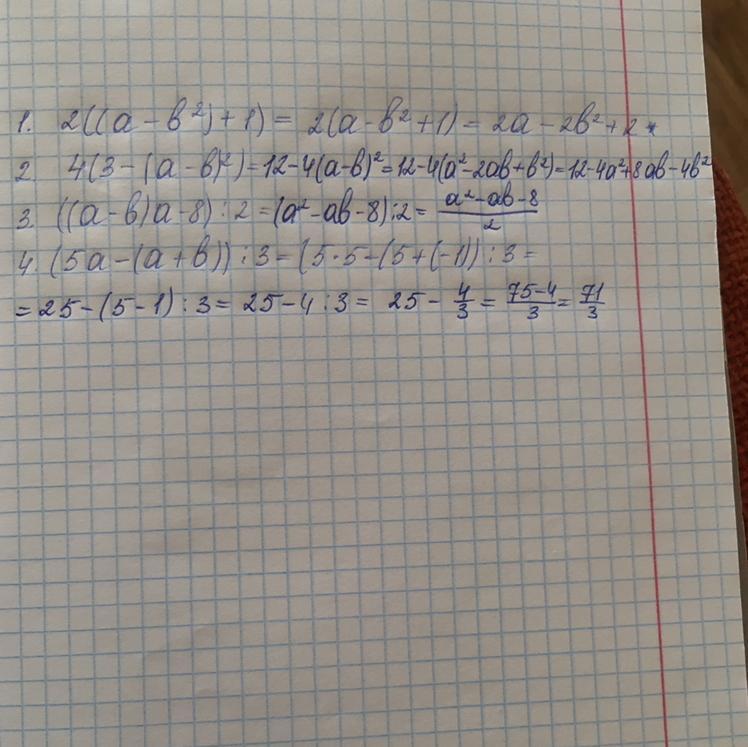 1. 2((a - b²) + 1) = 2(a - b² + 1) = 2a - 2b² + 2
2. 4(3 - (a - b)²) = 12 - 4(a - b)² = 12 - 4(a² - 2ab + b²) = 12 - 4a² + 8ab - 4b²
3. ((a - b)a - 8) : 2 = (a² - ab - 8) : 2 = \frac{a² - ab - 8}{2}
4. (5a - (a + b)) : 3 = (5 · 5 - (5 + (-1)) : 3 =
= 25 - (5 - 1) : 3 = 25 - 4 : 3 = 25 - \frac{4}{3} = \frac{75 - 4}{3} = \frac{71}{3}